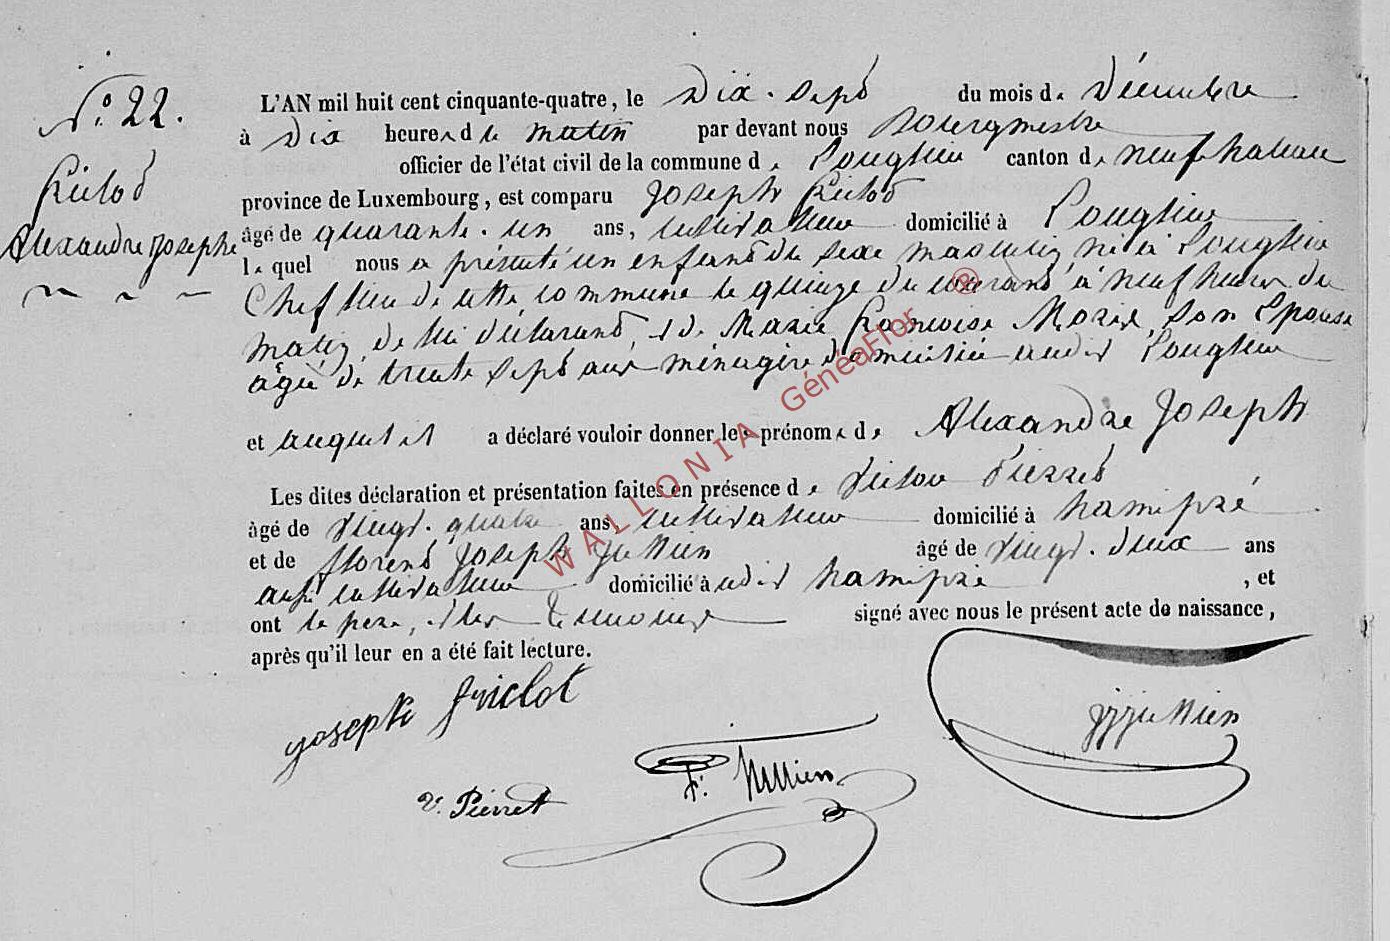 N.° 22.
Alexandre Joseph
L'AN mil huit cent cinquante-quatre, le Dix-sept du mois de Décembre
à Dix heures de matin par devant nous Bourgmestre
officier de l'état civil de la commune de Longlier canton de neufchateau
province de Luxembourg, est comparu Joseph
âgé de quarante-un ans, cultivateur domicilié à Longlier
le quel nous a présenté un enfant du sexe masculin né à Longlier
Chef lieu de cette commune le quinze du courant à neuf heures du
matin, de lui déclarant, et de Marie françoise son Epouse
âgée de trente sept ans ménagère domiciliée audit Longlier
et auquel il a déclaré vouloir donner les prénoms de Alexandre Joseph
Les dites déclaration et présentation faites en présence de Victor Pierret
âgé de vingt-quatre ans, cultivateur domicilié à hamipré
et de florent Joseph Jullien âgé de vingt-deux ans
aussi cultivateur domicilié à udit hamipré , et
ont le pere, et les témoins signé avec nous le présent acte de naissance,
après qu'il leur en a été fait lecture.
joseph
V. Pierret
Jullien
WALLONIA GénéaFlor ®